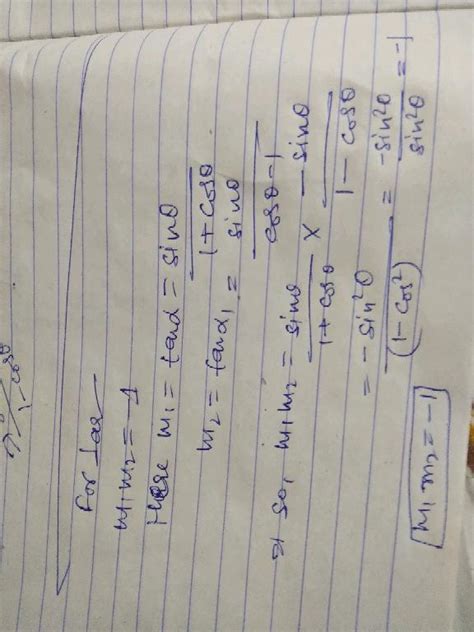 1-cosθ
For
m₁m₂ = -1
Here m₁ = tanα = sinθ / 1+cosθ
m₂ = tanα₁ = sinθ / cosθ-1
⇒ so, m₁m₂ = sinθ / 1+cosθ × -sinθ / 1-cosθ
= -sin²θ / (1-cos²) = -sin²θ / sin²θ = -1
m₁m₂ = -1